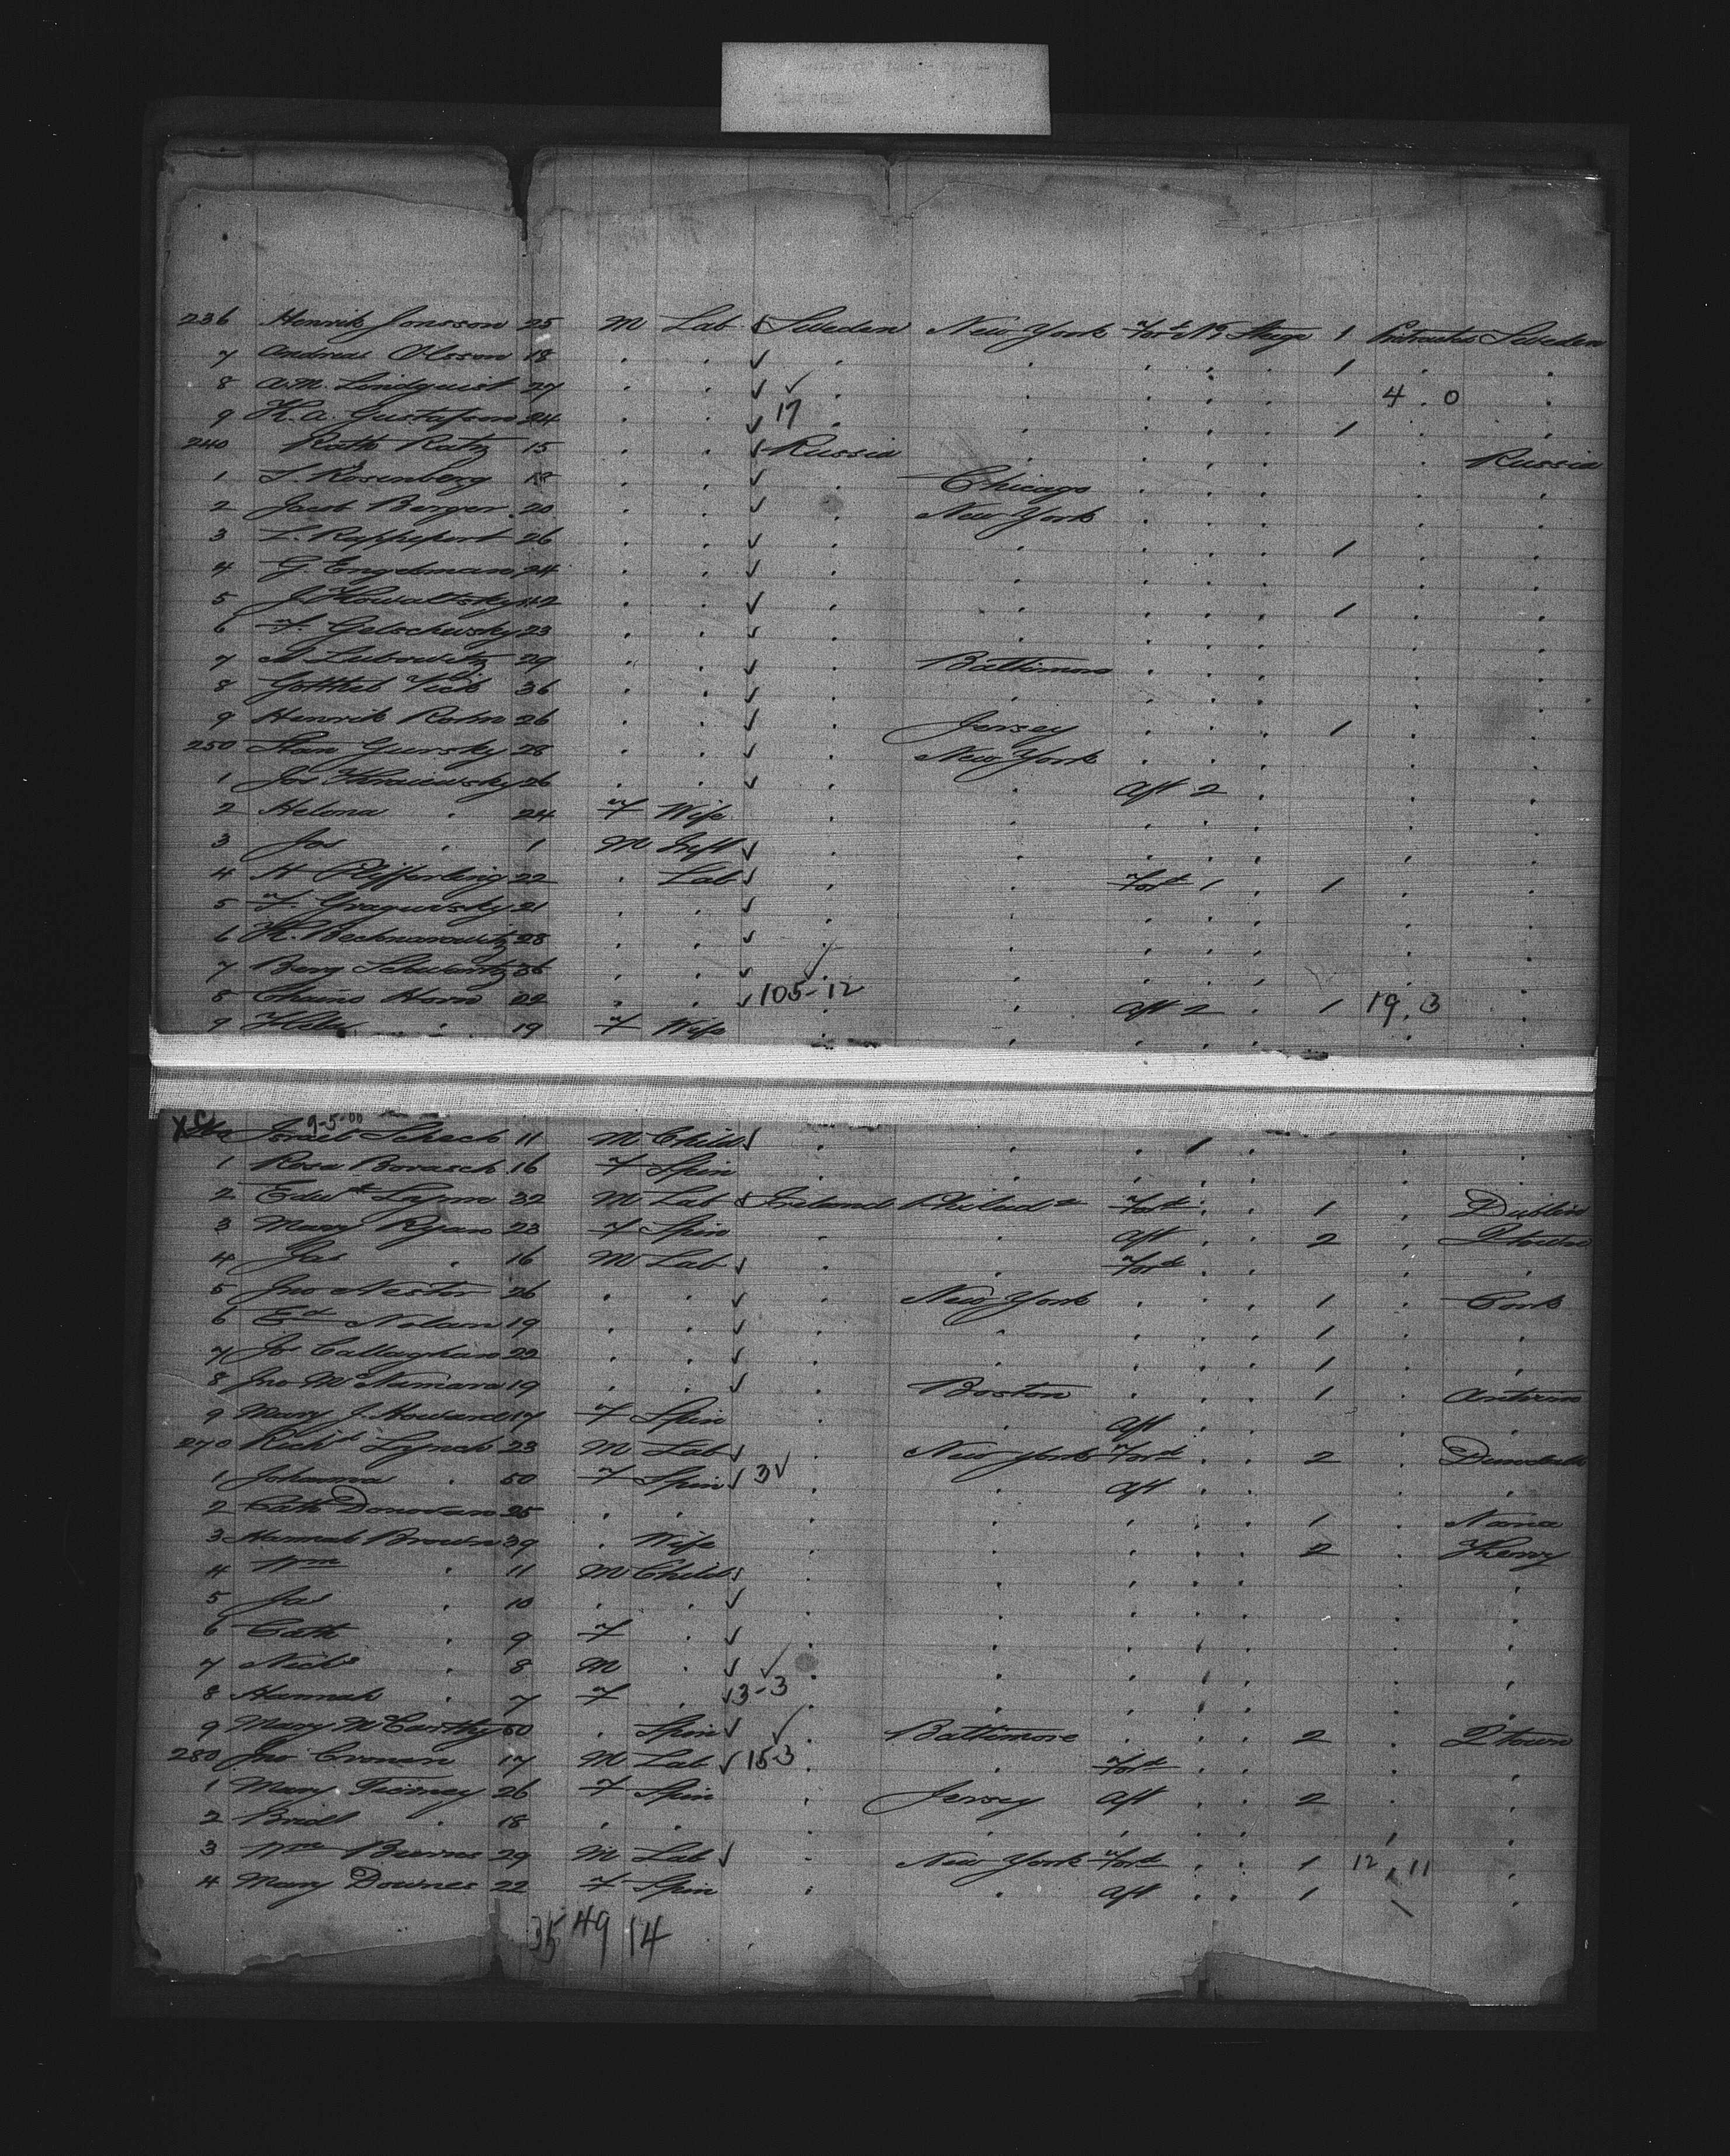 236 Henrik Jonsson 25 M Lab Sweden New York Ford No 1 Stage 1 Protracted Sweden
7 Andreas Olsson 18 . . . . . . . 1 . .
8 A.M. Lindquist 27 . . . . . . . 4 . 0 .
9 K.A. Gustafson 24 . . 17 . . . . . 1 . .
240 Ratz 15 . . Russia . . . . . Russia
1 S. Rosenberg 18 . . . Chicago . . . . .
2 Jacob Berger 20 . . . New York . . . . .
3 L. Rappeport 26 . . . . . . . 1 . .
4 G. Engelman 24 . . . . . . . . .
5 J. Kowaltsky 42 . . . . . . . 1 . .
6 F. Gelschewsky 23 . . . . . . . . .
7 M Lubowitz 29 . . . Baltimore . . . . .
8 Gottlieb 36 . . . . . . . . .
9 Henrik Rohn 26 . . . Jersey . . . 1 . .
250 Gursky 28 . . . New York . . . . .
1 Jos 26 . . . . Aft 2 . . .
2 Helena . 24 F Wife . . . . . . .
3 Jos . 1 M Inft . . . . . . .
4 H 22 . Lab . . Ford 1 . 1 . .
5 F. 21 . . . . . . . . .
6 28 . . . . . . . . .
7 Berg Schwartz 36 . . . . . . . . .
8 Horn 22 . . 105-12 . . Aft 2 . 1 19 . 3 .
9 . 19 F Wife . . . . . .
9-5-00
Schach 11 M Child . . 1 . . . .
1 Rosa Borasch 16 F Spin . . . . . . .
2 Edwd 32 M Lab Ireland Philada Ford . . 1 . Dublin
3 Mary Ryan 23 F Spin . . Aft . . 2 . Qtown
4 Jas . 16 M Lab . . Ford . . . .
5 Jno Nestor 26 . . . New York . . . 1 . Cork
6 Ed Nolan 19 . . . . . . . 1 . .
7 Callaghan 22 . . . . . . . 1 . .
8 Jno McNamara 19 . . . Boston . . . 1 . Antrim
9 Mary J. Howard 17 F Spin . . Aft . . . .
270 Richd Lynch 23 M Lab . New York Ford . . 2 . Dundalk
1 Johanna . 50 F Spin 3 . . Aft . . . .
2 Cath Donovan 25 . . . . . . . 1 .
3 Hannah Brown 39 . Wife . . . . . 2 . Kerry
4 Wm . 11 M Child . . . . . . .
5 Jas . 10 . . . . . . . . .
6 Cath . 9 F . . . . . . . .
7 Nichs . 8 M . . . . . . . .
8 Hannah . 7 F . 3-3 . . . . . . .
9 Mary McCarthy 50 . Spin . Baltimore . . . 2 . Qtown
280 Jno Cronin 17 M Lab 15-3 . . Ford . . . .
1 Mary Tierney 26 F Spin . Jersey Aft . . 2 . .
2 Bridt . 18 . . . . . . . . .
3 Wm Burns 29 M Lab . New York Ford . . 1 12 . 11 .
4 Mary Downes 22 F Spin . . Aft . . 1 .
35 49 14